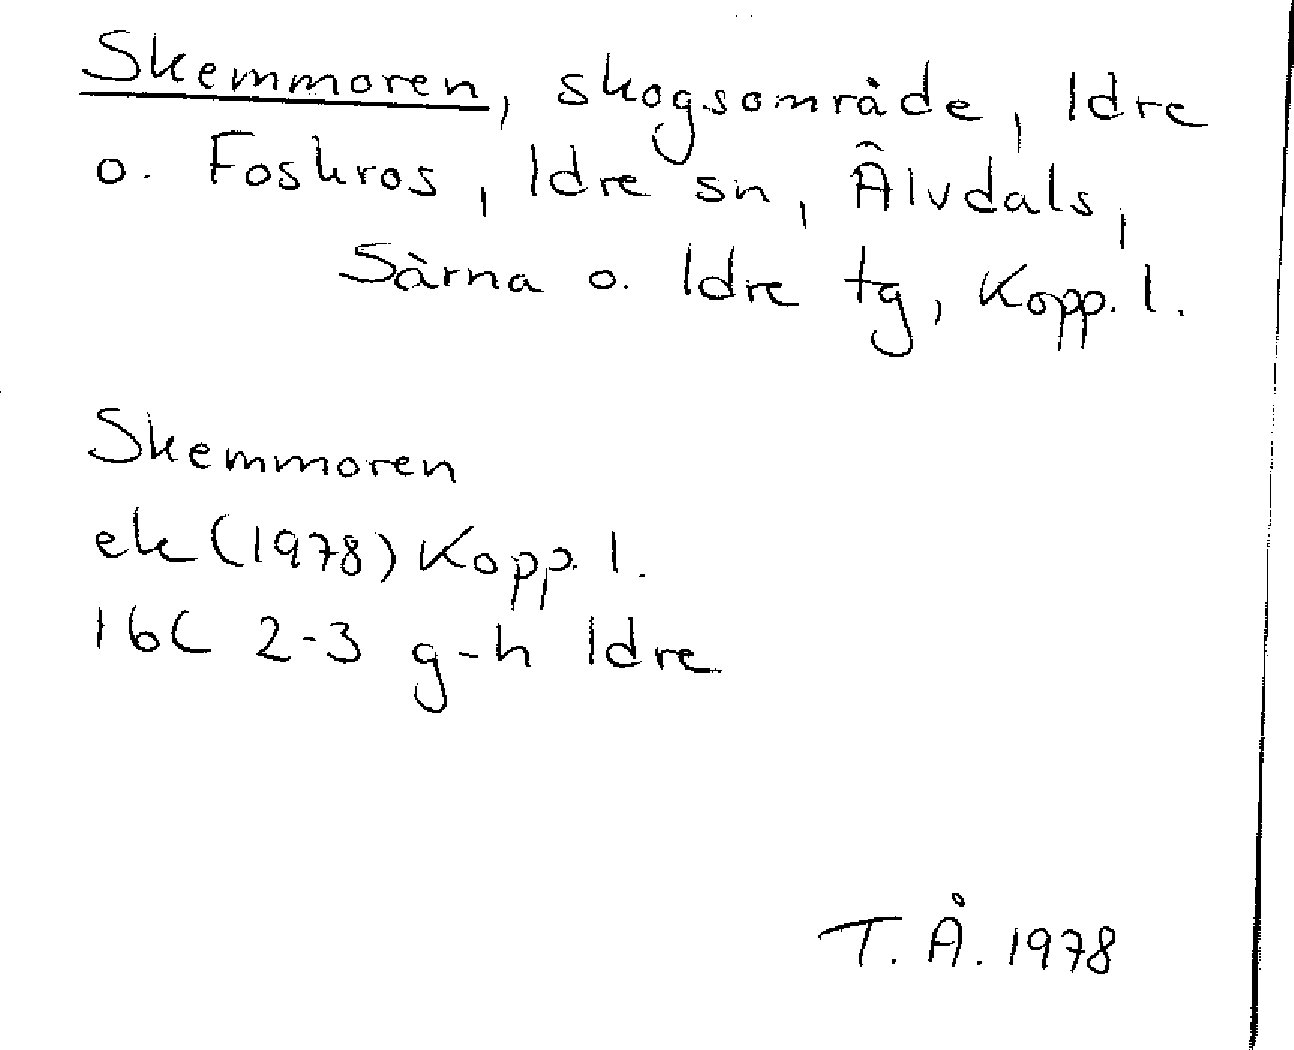 Skemmoren, skogsområde, Idre
o. Foskros, Idre sn, Älvdals,
Särna o. Idre tg, Kopp. l.
Skemmoren
ek (1978) Kopp. l.
16C 2-3 g-h Idre
T. Å. 1978